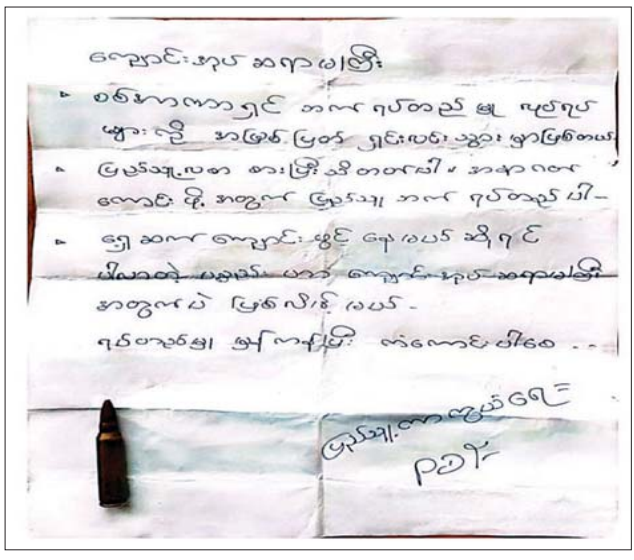 ကျောင်းအုပ်ဆရာမကြီး
စစ်အာဏာရှင် ဘက် ရပ်တည် မှု လုပ်ရပ်
များ ကို အမြစ် ဖြတ် ရှင်းလင်း သွား မှာဖြစ်တယ်
ပြည်သူ့လစာ စားပြီး သိတတ်ပါ။ အနာဂတ်
ကောင်း ဖို့ အတွက် ပြည်သူ ဘက် ရပ်တည် ပါ-
ရှေ့ ဆက် ကျောင်း ဖွင့် နေ မယ် ဆို ရင်
ပါလာတဲ့ ပစ္စည်း ဟာ ကျောင်း အုပ် ဆရာမကြီး
အတွက် ပဲ ဖြစ်လိမ့် မယ်-
ရပ်တည်မှု မှန်ကန်ပြီး ကံကောင်းပါစေ - -
ပြည်သူ့ကာကွယ်ရေး=